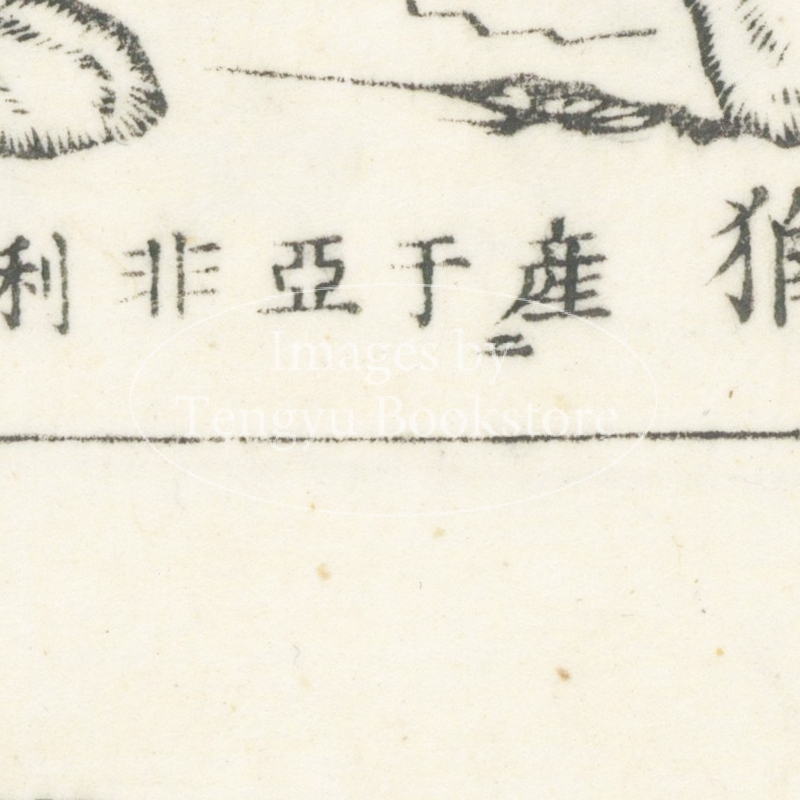 産二于亞非利
Images by
Tengyu Bookstore